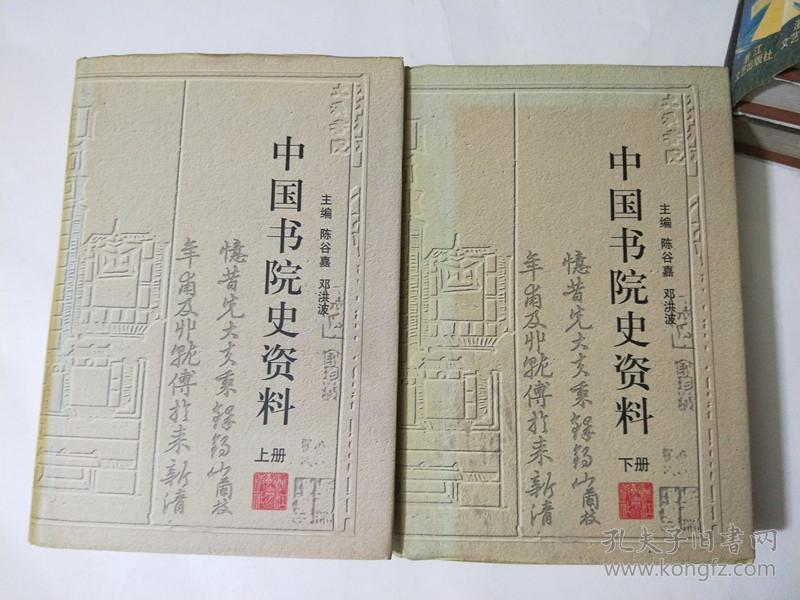 中国书院史资料
主编 陈谷嘉 邓洪波
憶昔先大夫秉鐸
年甫及
傅於来新
上册
中国书院史资料
主编 陈谷嘉 邓洪波
憶昔先大夫秉鐸
年甫及
傅於来新
下册
浙江
文艺出版社
孔夫子旧书网
www.kongfz.com